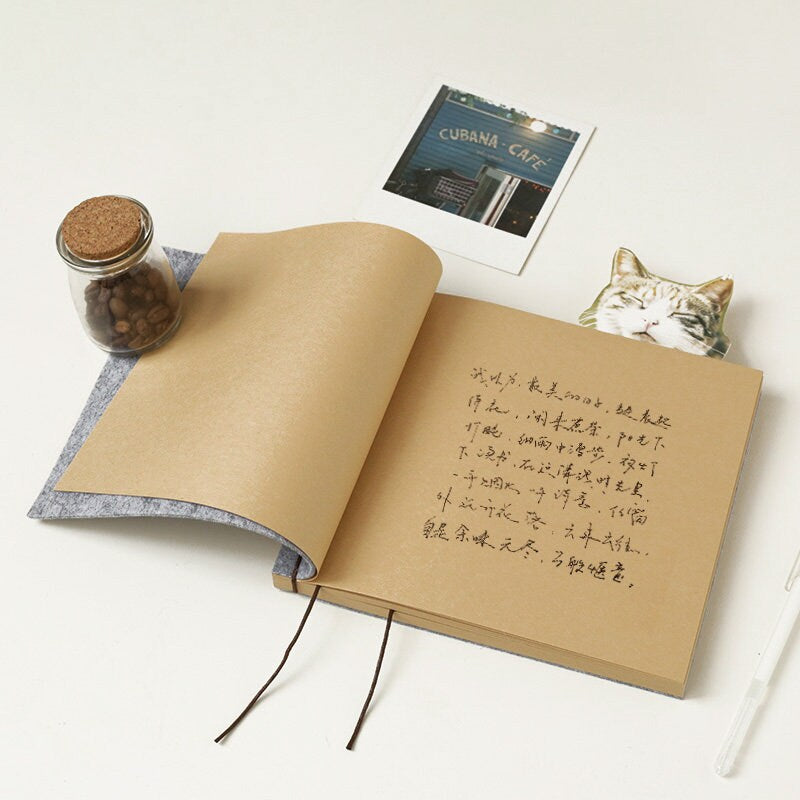 CUBANA · CAFÉ
我以为，最美的日子，
闲来煮茶，阳光下
打盹，细雨中漫步，夜灯
下读书，在这清浅时光里，
一手烟火 一手诗意，任窗
外花开花落，云来云往，
自是余味无尽，万般惬意。